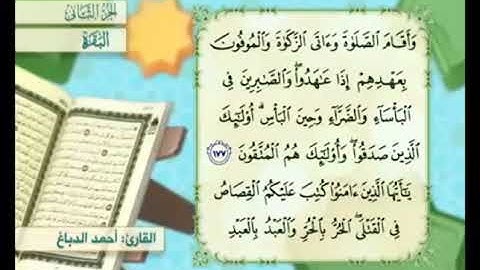 الجزء الثاني
البقرة
وَأَقَامَ الصَّلَوٰةَ وَءَاتَى الزَّكَوٰةَ وَالْمُوفُونَ
بِعَهْدِهِمْ إِذَا عَٰهَدُوا۟ ۖ وَالصَّٰبِرِينَ فِى
الْبَأْسَآءِ وَالضَّرَّآءِ وَحِينَ الْبَأْسِ ۗ أُو۟لَٰٓئِكَ
الَّذِينَ صَدَقُوا۟ ۖ وَأُو۟لَٰٓئِكَ هُمُ الْمُتَّقُونَ ١٧٧
يَٰٓأَيُّهَا الَّذِينَ ءَامَنُوا۟ كُتِبَ عَلَيْكُمُ الْقِصَاصُ
فِى الْقَتْلَى ۖ الْحُرُّ بِالْحُرِّ وَالْعَبْدُ بِالْعَبْدِ
القارئ: أحمد الدباغ